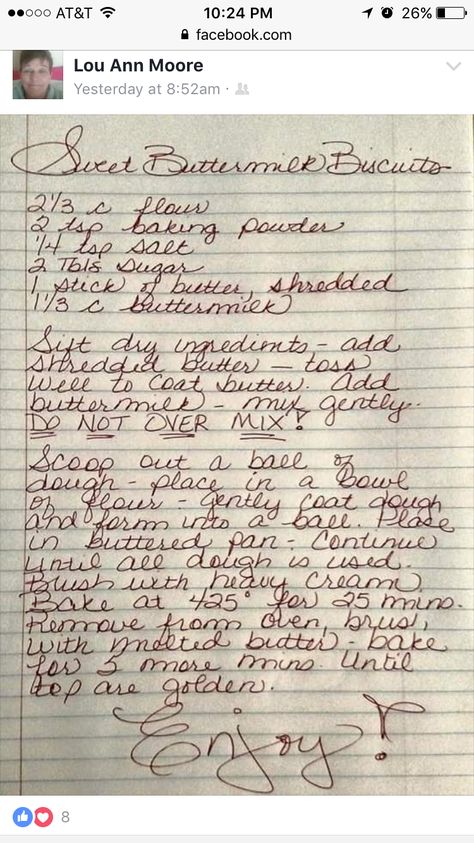 AT&T 10:24 PM 26%
facebook.com
Lou Ann Moore
Yesterday at 8:52am ·
Sweet Buttermilk Biscuits
2 1/3 c flour
2 tsp baking powder
1/4 tsp salt
2 Tbls sugar
1 stick of butter, shredded
1 1/3 c buttermilk
Sift dry ingredients - add
shredded butter - toss
well to coat butter. Add
buttermilk - mix gently.
DO NOT OVER MIX!
Scoop out a ball of
dough - place in a bowl
of flour - gently coat dough
and form into a ball. Place
in buttered pan - Continue
until all dough is used.
Brush with heavy cream.
Bake at 425° for 25 mins.
Remove from oven, brush
with melted butter - bake
for 5 more mins. Until
top are golden.
Enjoy!
8